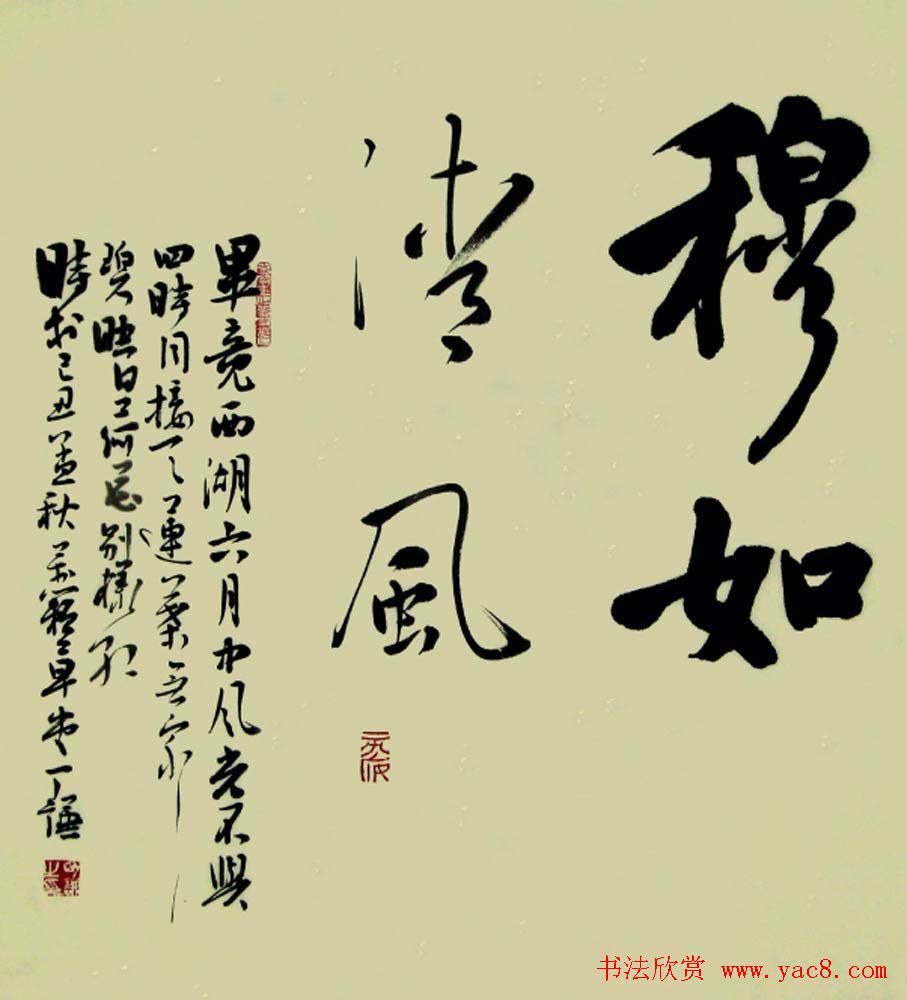 穆如
清風
畢竟西湖六月中风光不與
四時同接天蓮葉无窮
碧映日荷花别樣红
時於己丑秋草堂丁謙
书法欣赏 www.yac8.com